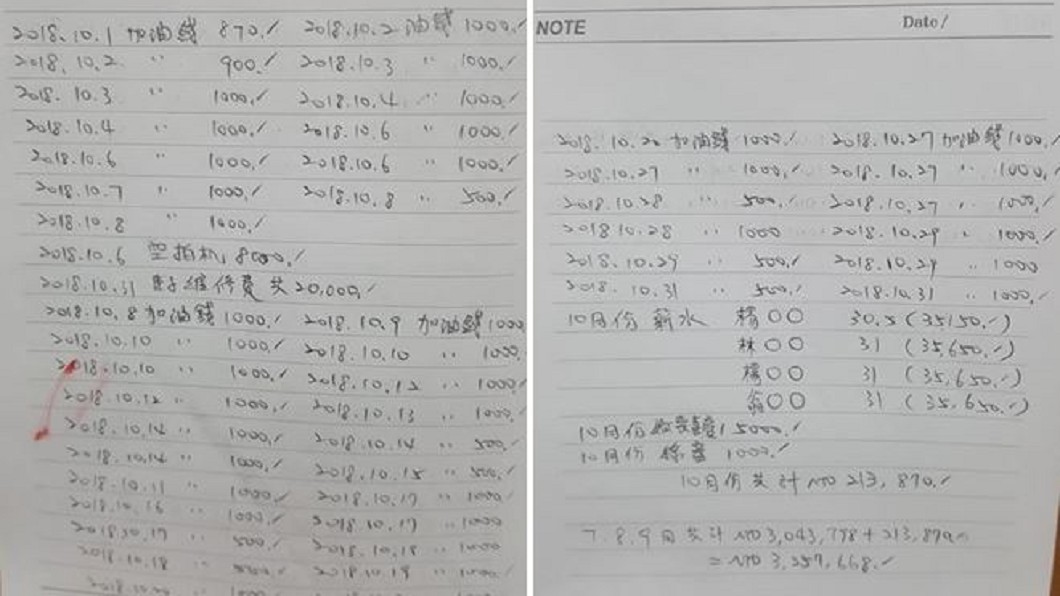 2018.10.1 加油錢 870./ 2018.10.2 油錢 1000./
2018.10.2 〃 900./ 2018.10.3 〃 1000./
2018.10.3 〃 1000./ 2018.10.4 〃 1000./
2018.10.4 〃 1000./ 2018.10.6 〃 1000./
2018.10.6 〃 1000./ 2018.10.6 〃 1000./
2018.10.7 〃 1000./ 2018.10.8 〃 500./
2018.10.8 〃 1000./
2018.10.6 空拍机 8000./
2018.10.31 維修費 共20,000./
2018.10.8 加油錢 1000./ 2018.10.9 加油錢 1000
2018.10.10 〃 1000./ 2018.10.10 〃 1000
2018.10.10 〃 1000./ 2018.10.12 〃 1000./
2018.10.12 〃 1000./ 2018.10.13 〃 1000./
2018.10.14 〃 1000./ 2018.10.14 〃 500./
2018.10.14 〃 1000./ 2018.10.15 〃 500./
2018.10.11 〃 1000./ 2018.10.17 〃 1000
2018.10.16 〃 1000./ 2018.10.17 〃 1000
2018.10.17 〃 500./ 2018.10.18 〃 1000
2018.10.18 〃 2018.10.19 〃 1000./
NOTE Date/
2018.10.20 加油錢 1000./ 2018.10.27 加油錢 1000./
2018.10.27 〃 1000./ 2018.10.27 〃 1000./
2018.10.28 〃 500./ 2018.10.27 〃 1000./
2018.10.28 〃 1000 2018.10.29 〃 1000./
2018.10.29 〃 500./ 2018.10.29 〃 1000
2018.10.31 〃 500./ 2018.10.31 〃 1000./
10月份 薪水 楊〇〇 30.5 (35150./)
林〇〇 31 (35,650./)
楊〇〇 31 (35,650./)
翁〇〇 31 (35,650./)
10月份 5000./
10月份 1000./
10月份共計 NTD 213,870./
7.8.9月共計 NTD 3,043,798 + 213,870
= NTD 3,257,668./